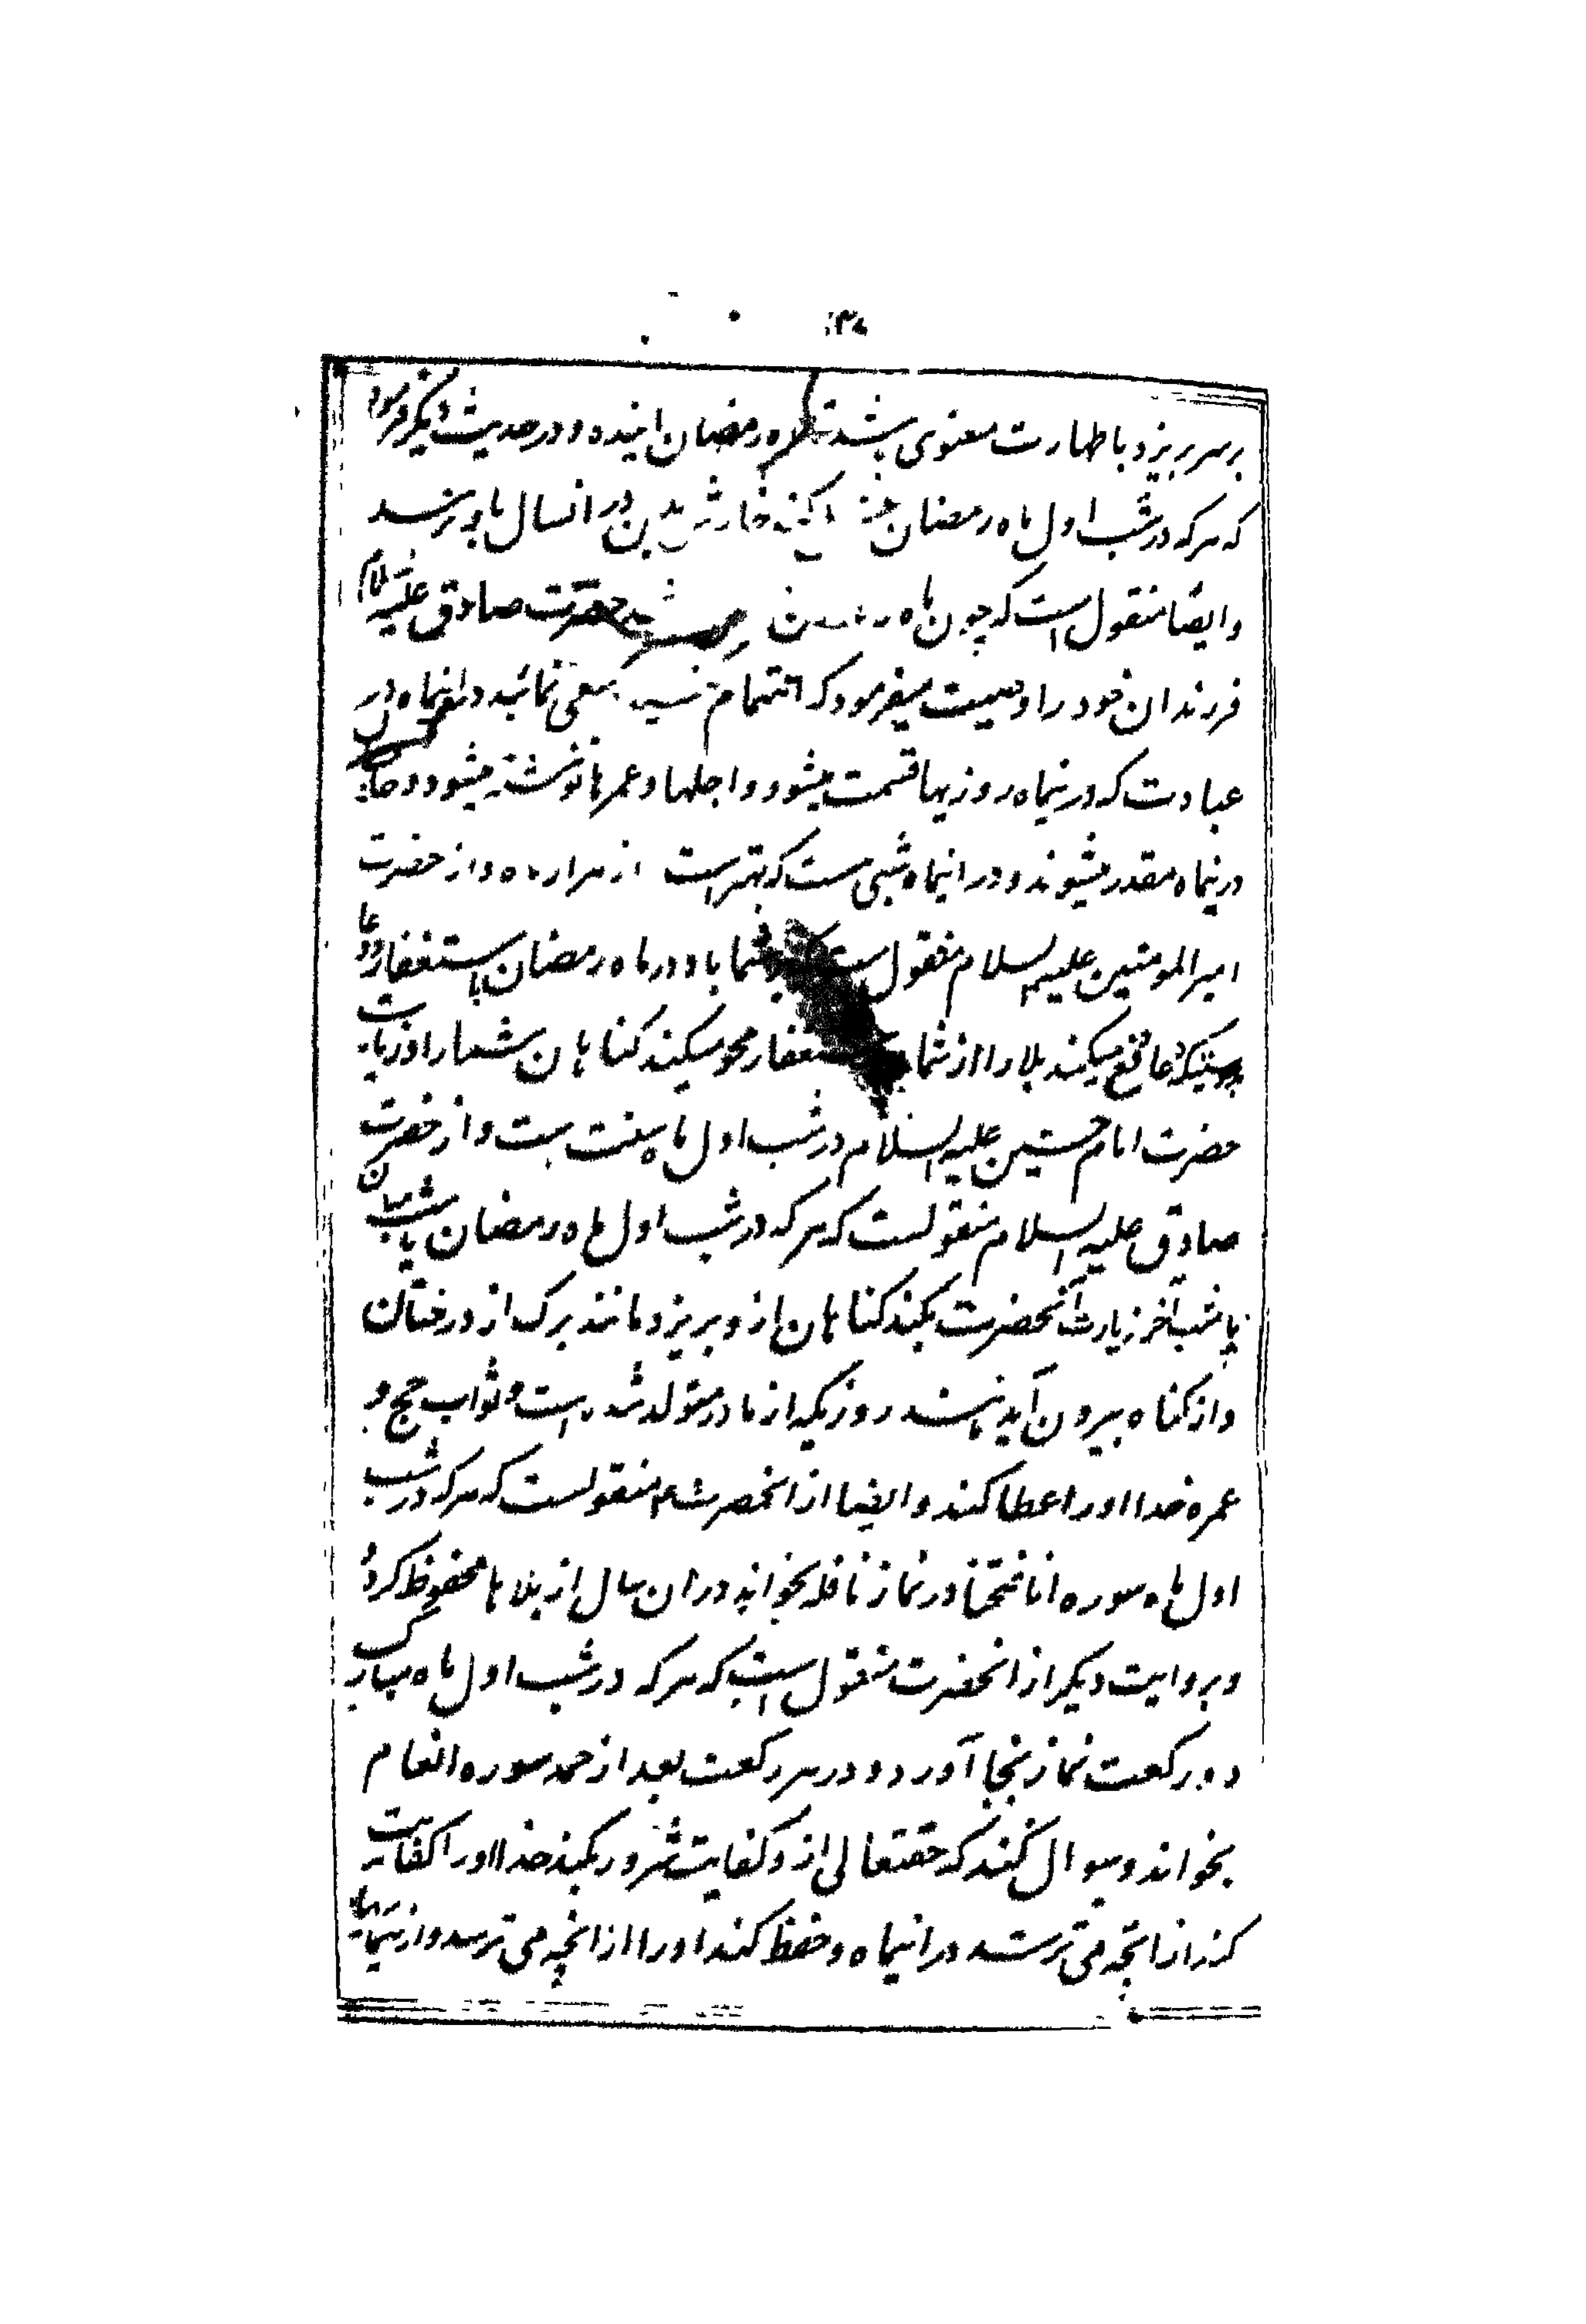 بر سر بریزد با طهارت معنوی باشد تا ماه رمضان اینده و در حدیث دیگر فرمود
که هرکه در شب اول ماه رمضان غسل کند خارش بدن در انسال باو نرسد
وایضا منقول است که چون ماه رمضان حضرت صادق علیه السلام
فرزندان خود را وصیت میفرمود که اهتمام سعی نمائید در اینماه در
عبادت که در نیماه روزیها قسمت میشود و اجلها و عمرها نوشته میشود و حاجیان
در نیماه مقدر میشوند و در اینماه شبی هست که بهتر است از هزار ماه و از حضرت
امیرالمومنین علیه السلام منقول است که بر شما باد در ماه رمضان باستغفار و دعا
بدرستیکه دعا دفع میکند بلا را از شما استغفار محو میکند کناهان شما را و زیارت
حضرت امام حسین علیه السلام در شب اول ماه سنت است و از حضرت
صادق علیه السلام منقولست که هرکه در شب اول ماه رمضان یا شب میان
یا شب آخر زیارت آنحضرت بکند کناهان از و بریزد مانند برک از درختان
و از کناه بیرون آید مانند روزیکه از مادر متولد شده است و ثواب حج و
عمره خدا او را عطا کند و ایضا از انحضرت منقولست که هرکه در شب
اول ماه سوره انا فتحنا در نماز نافله بخواند در ان سال از بلاها محفوظ کردد
و بروایت دیکر از انحضرت منقول است که هرکه در شب اول ماه مبارک
دو رکعت نماز بجا آورد و در هر رکعت بعد از حمد سوره انعام
بخواند و سوال کند که حقتعالی از و کفایت شرور بکند خدا او را کفایت
کند از انچه می ترسد در اینماه و حفظ کند او را از انچه می ترسد و از بیماریها